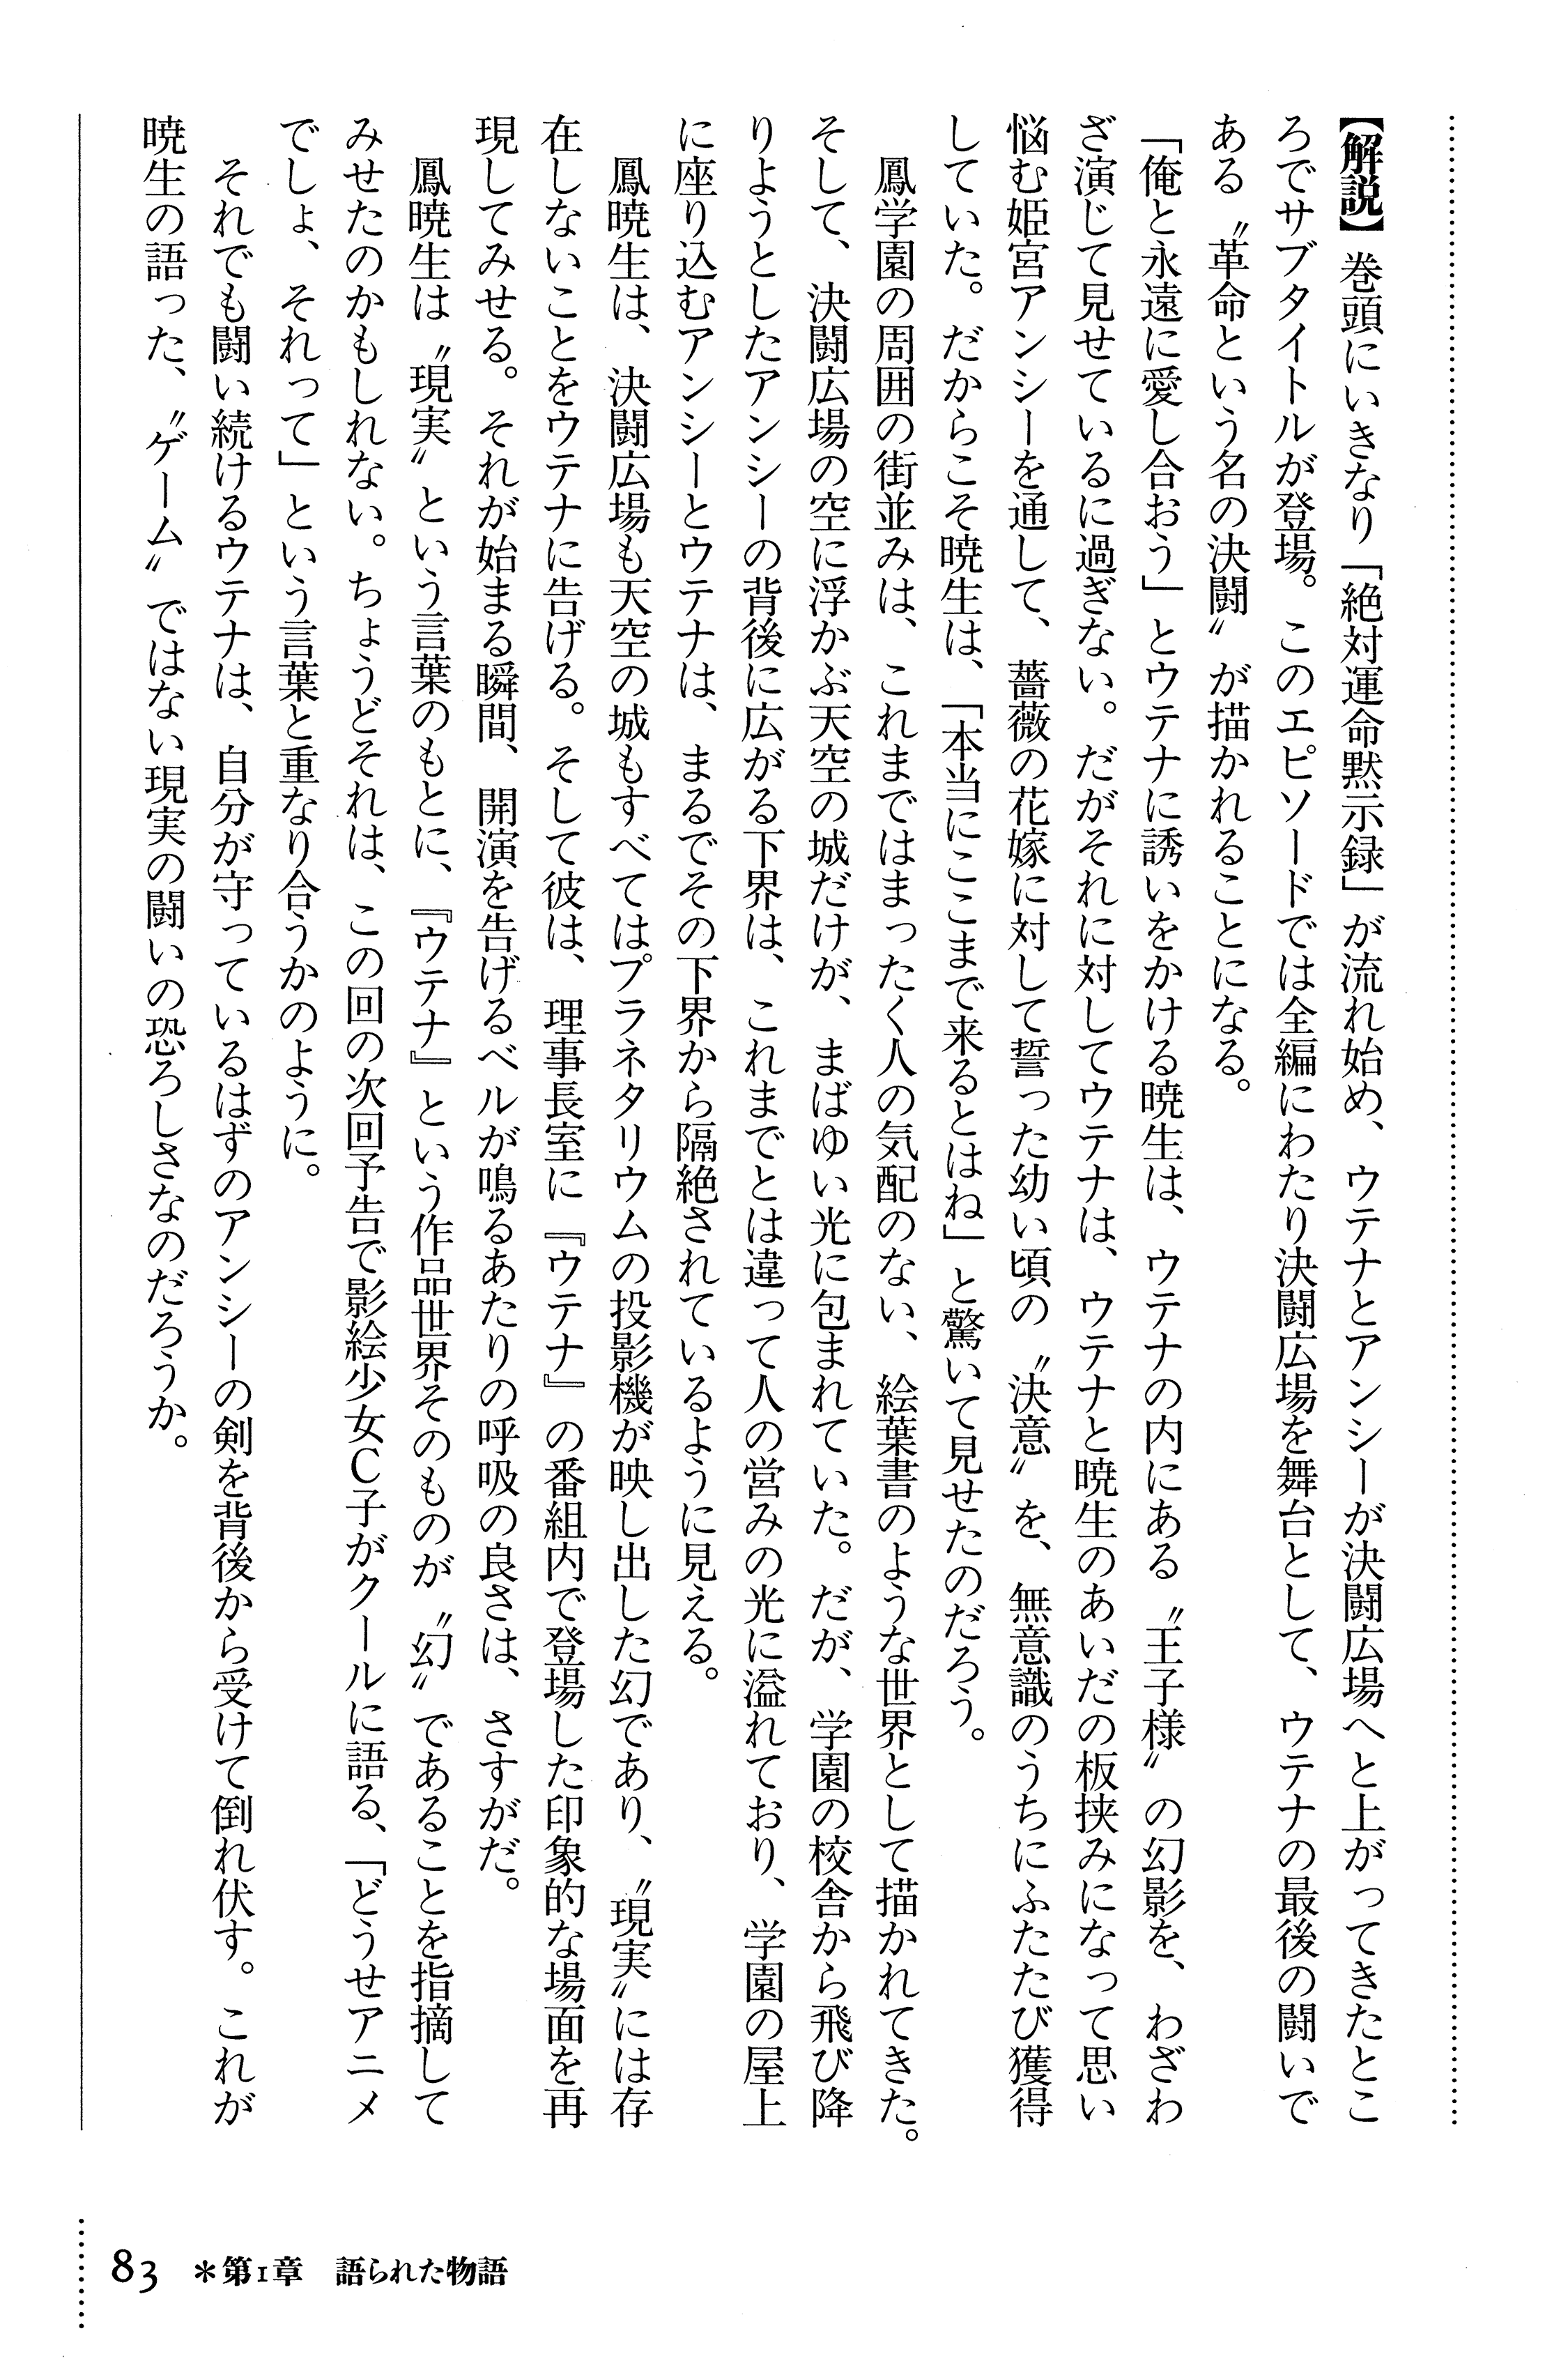 【解説】巻頭にいきなり「絶対運命黙示録」が流れ始め、ウテナとアンシーが決闘広場へと上がってきたとこ
ろでサブタイトルが登場。このエピソードでは全編にわたり決闘広場を舞台として、ウテナの最後の闘いで
ある〝革命という名の決闘〟が描かれることになる。
「俺と永遠に愛し合おう」とウテナに誘いをかける暁生は、ウテナの内にある〝王子様〟の幻影を、わざわ
ざ演じて見せているに過ぎない。だがそれに対してウテナは、ウテナと暁生のあいだの板挟みになって思い
悩む姫宮アンシーを通して、薔薇の花嫁に対して誓った幼い頃の〝決意〟を、無意識のうちにふたたび獲得
していた。だからこそ暁生は、「本当にここまで来るとはね」と驚いて見せたのだろう。
　鳳学園の周囲の街並みは、これまではまったく人の気配のない、絵葉書のような世界として描かれてきた。
そして、決闘広場の空に浮かぶ天空の城だけが、まばゆい光に包まれていた。だが、学園の校舎から飛び降
りようとしたアンシーの背後に広がる下界は、これまでとは違って人の営みの光に溢れており、学園の屋上
に座り込むアンシーとウテナは、まるでその下界から隔絶されているように見える。
　鳳暁生は、決闘広場も天空の城もすべてはプラネタリウムの投影機が映し出した幻であり、〝現実〟には存
在しないことをウテナに告げる。そして彼は、理事長室に『ウテナ』の番組内で登場した印象的な場面を再
現してみせる。それが始まる瞬間、開演を告げるベルが鳴るあたりの呼吸の良さは、さすがだ。
　鳳暁生は〝現実〟という言葉のもとに、『ウテナ』という作品世界そのものが〝幻〟であることを指摘して
みせたのかもしれない。ちょうどそれは、この回の次回予告で影絵少女C子がクールに語る、「どうせアニメ
でしょ、それって」という言葉と重なり合うかのように。
　それでも闘い続けるウテナは、自分が守っているはずのアンシーの剣を背後から受けて倒れ伏す。これが
暁生の語った、〝ゲーム〟ではない現実の闘いの恐ろしさなのだろうか。
83　＊第1章　語られた物語